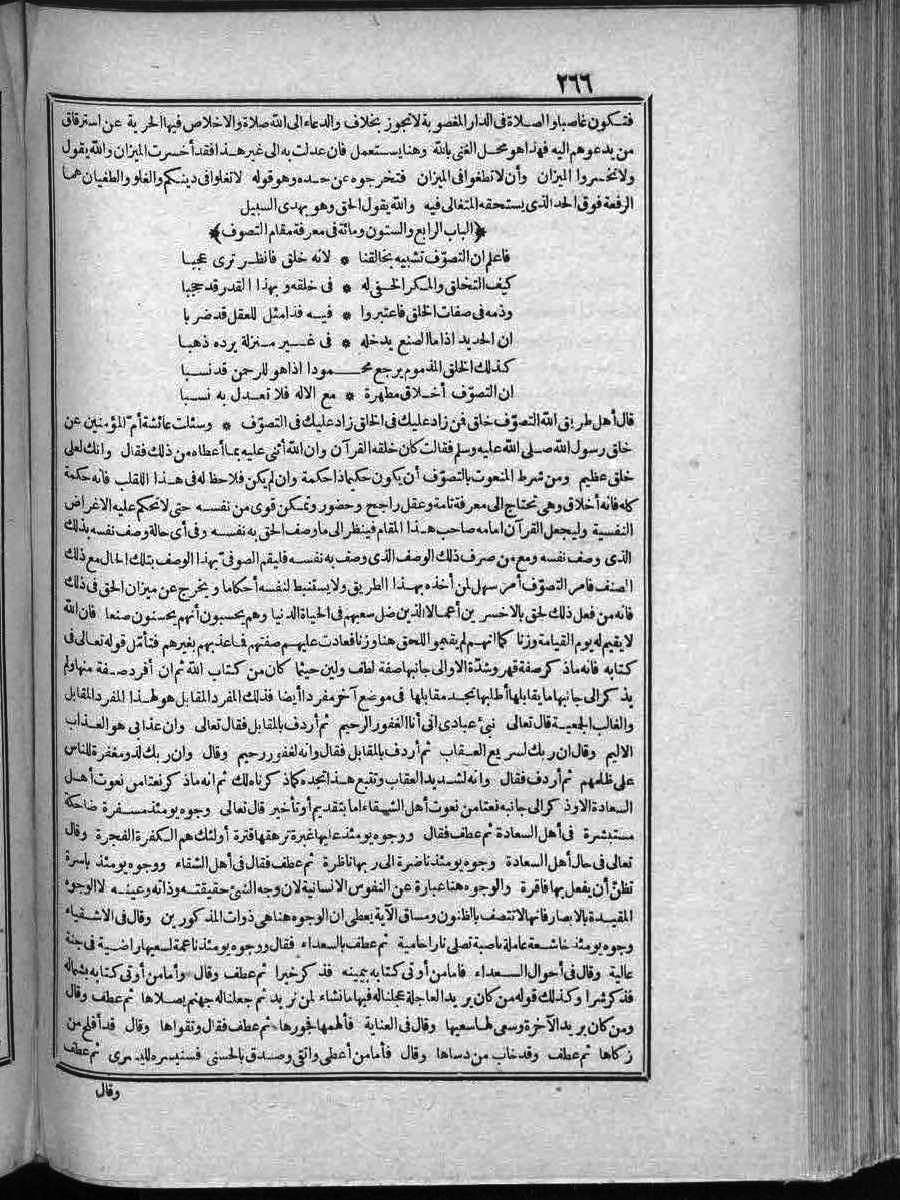 ٢٦٦
فتكون غاصبا والصلاة فى الدار المغصوبة لا تجوز بخلاف والدعاء الى الله صلاة والاخلاص فيها الحرية عن استرقاق
من يدعوهم اليه فهذا هو محل الغنى بالله وهنا يستعمل فان عدلت به الى غير هذا فقد أخسرت الميزان والله يقول
ولا تخسروا الميزان وأن لا تطغوا فى الميزان فتخرجوه عن حده وهو قوله لا تغلوا فى دينكم والغلو والطغيان هما
الرفعة فوق الحد الذى يستحقه المتغالى فيه والله يقول الحق وهو يهدى السبيل
﴿الباب الرابع والستون ومائة فى معرفة مقام التصوف﴾
فاعلم ان التصوّف تشبيه بخالقنا * لانه خلق فانظر ترى عجبا
كيف التخلق والمكر الخفى له * فى خلقه وبهذا القدر قد حجبا
وذمه فى صفات الخلق فاعتبروا * فيه فذا مثل للعقل قد ضربا
ان الحديد اذا ما الصنع يدخله * فى غير منزلة يرده ذهبا
كذلك الخلق المذموم يرجع محمودا اذا هو للرحمن قد نسبا
ان التصوّف أخلاق مطهرة * مع الاله فلا تعدل به نسبا
قال أهل طريق الله التصوّف خلق فمن زاد عليك فى الخلق زاد عليك فى التصوّف * وسئلت عائشة أمّ المؤمنين عن
خلق رسول الله صلى الله عليه وسلم فقالت كان خلقه القرآن وان الله أثنى عليه بما أعطاه من ذلك فقال وانك لعلى
خلق عظيم ومن شرط المنعوت بالتصوّف أن يكون حكيما ذا حكمة وان لم يكن فلا حظ له فى هذا اللقب فانه حكمة
كله فانه أخلاق وهى تحتاج الى معرفة تامة وعقل راجح وحضور وتمكن قوى من نفسه حتى لا تحكم عليه الاغراض
النفسية وليجعل القرآن امامه صاحب هذا المقام فينظر الى ما وصف الحق به نفسه وفى أى حالة وصف نفسه بذلك
الذى وصف نفسه ومع من صرف ذلك الوصف الذى وصف به نفسه فليقم الصوفىّ بهذا الوصف بتلك الحال مع ذلك
الصنف فامر التصوّف أمر سهل لمن أخذه بهذا الطريق ولا يستنبط لنفسه أحكاما ويخرج عن ميزان الحق فى ذلك
فانه من فعل ذلك لحق بالاخسرين أعمالا الذين ضل سعيهم فى الحياة الدنيا وهم يحسبون أنهم يحسنون صنعا فان الله
لا يقيم له يوم القيامة وزنا كما انهم لم يقيموا للحق هنا وزنا فعادت عليهم صفتهم فما عذبهم بغيرهم فتأمّل قوله تعالى فى
كتابه فانه ماذكر صفة قهر وشدّة الا والى جانبها صفة لطف ولين حيثما كان من كتاب الله ثم ان أفرد صفة منها ولم
يذكر الى جانبها ما يقابلها أطلبها تجد مقابلها فى موضع آخر مفردا أيضا فذلك المفرد المقابل هو لهذا المفرد المقابل
والغالب الجمعية قال تعالى نبئ عبادى انى أنا الغفور الرحيم ثم أردف بالمقابل فقال تعالى وان عذابى هو العذاب
الاليم وقال ان ربك لسريع العقاب ثم أردف بالمقابل فقال وانه لغفور رحيم وقال وان ربك لذو مغفرة للناس
على ظلمهم ثم أردف فقال وانه لشديد العقاب وتتبع هذا تجده كما ذكرناه لك ثم انه ماذكر نعتا من نعوت أهل
السعادة الا وذكر الى جانبه نعتا من نعوت أهل الشقاء اما بتقديم أو تأخير قال تعالى وجوه يومئذ مسفرة ضاحكة
مستبشرة فى أهل السعادة ثم عطف فقال ووجوه يومئذ عليها غبرة ترهقها قترة أولئك هم الكفرة الفجرة وقال
تعالى فى حال أهل السعادة وجوه يومئذ ناضرة الى ربها ناظرة ثم عطف فقال فى أهل الشقاء ووجوه يومئذ باسرة
تظنّ أن يفعل بها فاقرة والوجوه هنا عبارة عن النفوس الانسانية لان وجه الشئ حقيقته وذاته وعينه لا الوجوه
المقيدة بالابصار فانها لا تتصف بالظنون ومساق الآية يعطى ان الوجوه هنا هى ذوات المذكورين وقال فى الاشقياء
وجوه يومئذ خاشعة عاملة ناصبة تصلى نارا حامية ثم عطف بالسعداء فقال ووجوه يومئذ ناعمة لسعيها راضية فى جنة
عالية وقال فى أحوال السعداء فاما من أوتى كتابه بيمينه فذكر خيرا ثم عطف وقال وأما من أوتى كتابه بشماله
فذكر شرا وكذلك قوله من كان يريد العاجلة عجلنا له فيها ما نشاء لمن نريد ثم جعلنا له جهنم يصلاها ثم عطف وقال
ومن كان يريد الآخرة وسعى لها سعيها وقال فى العناية فألهمها فجورها ثم عطف فقال وتقواها وقال قد أفلح من
زكاها ثم عطف وقد خاب من دساها وقال فأما من أعطى واتقى وصدق بالحسنى فسنيسره لليسرى ثم عطف
وقال